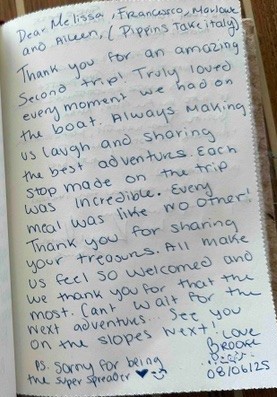 Dear Melissa, Francesco, Marlowe
and Aileen, (Pippins Take italy)
Thank you for an amazing
Second trip! Truly loved
every moment we had on
the boat. Always Making
us laugh and sharing
the best adventures. Each
stop made on the trip
was Incredible. Every
meal was like no other!
Thank you for sharing
your treasures. All make
us feel so welcomed and
we thank you for that the
most. Cant wait for the
next adventures... See you
on the slopes Next! Love
Brooke
PS. Sorry for being
the super spreader
08/06/25